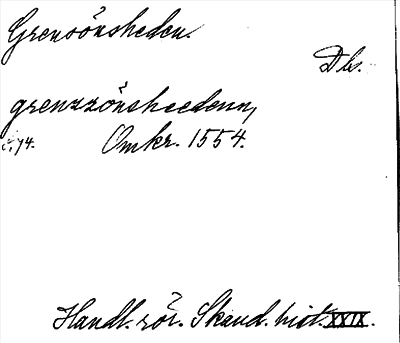 Grensönsheden.
Dls.
grenzzönsheedenn,
s. 74. Omkr. 1554.
Handl. rör. Skand. hist. XXIX.